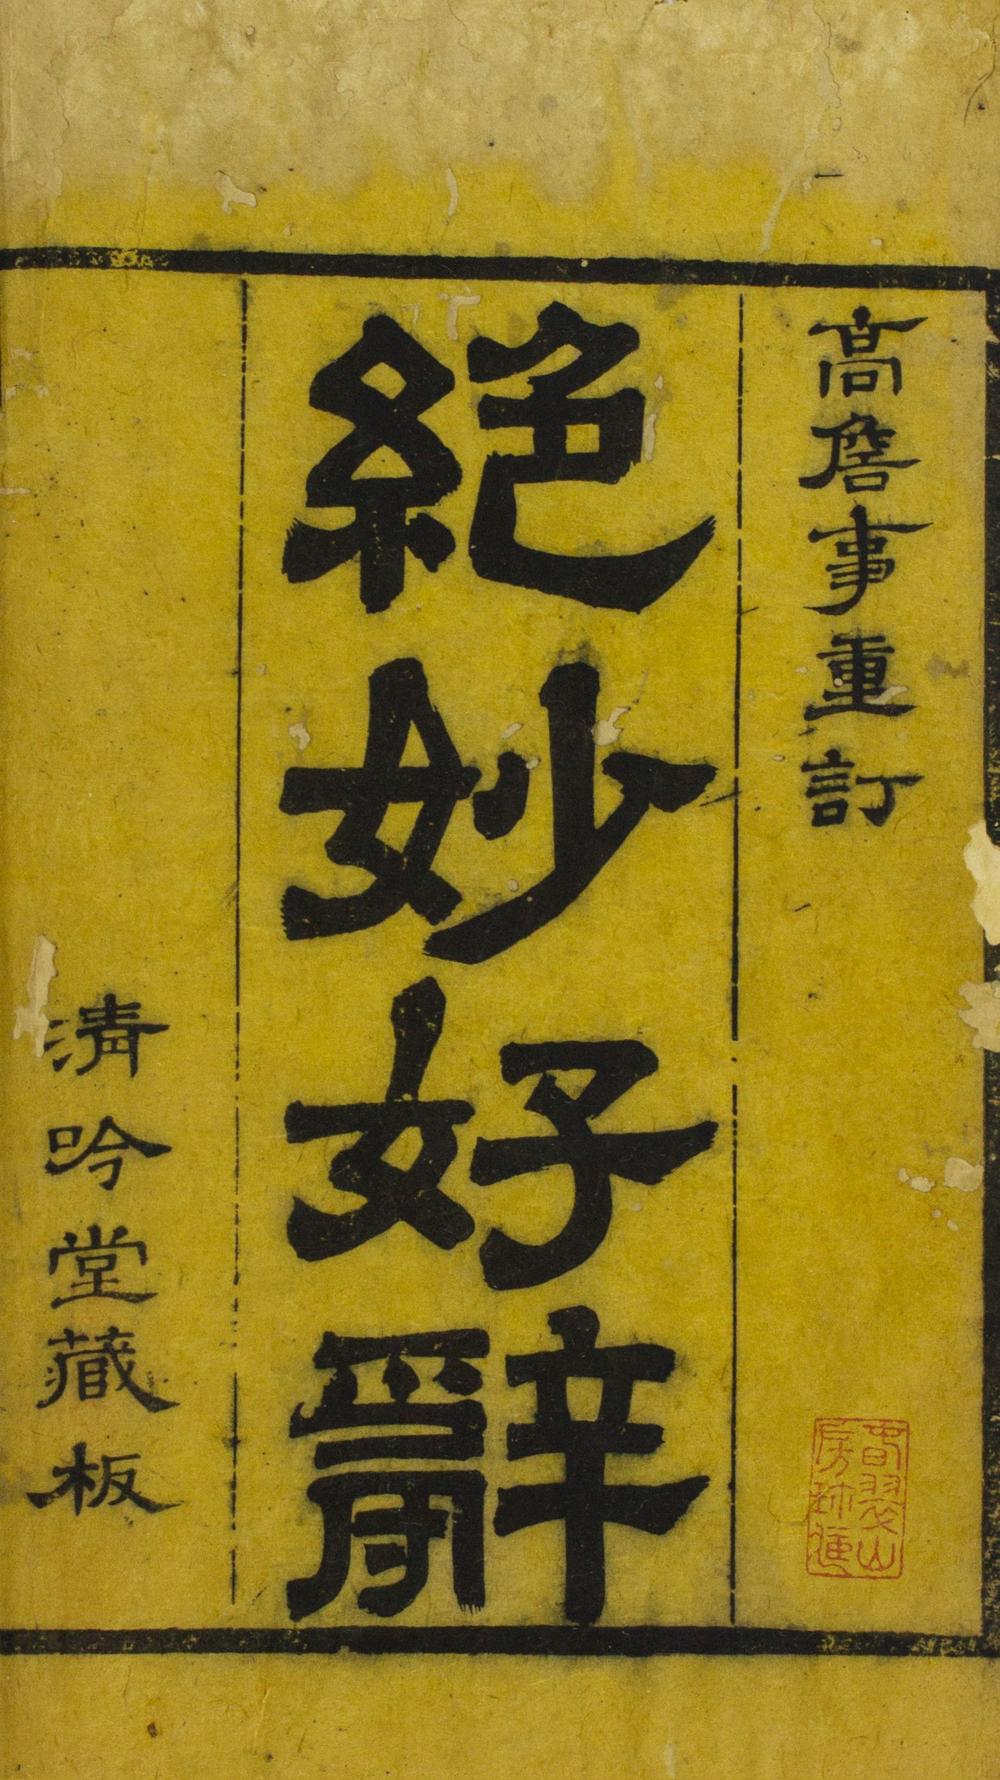 高詹事重訂
絶妙好辭
清吟堂藏板